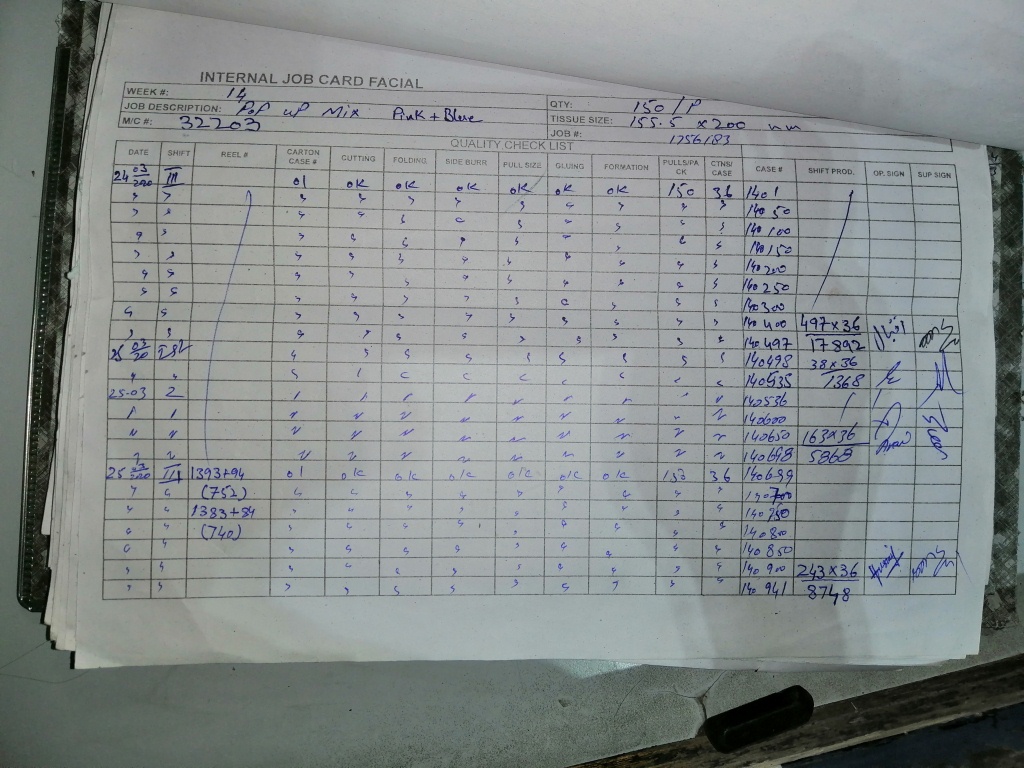 INTERNAL JOB CARD FACIAL
WEEK #: 14
QTY: 150/P
JOB DESCRIPTION: Pop up Mix Pink + Blue
TISSUE SIZE: 155.5 x 200 mm
M/C #: 32203
JOB #: 1756183
QUALITY CHECK LIST
DATE SHIFT REEL # CARTON CASE # CUTTING FOLDING SIDE BURR FULL SIZE GLUING FORMATION PULLS/PACK CTNS/CASE CASE # SHIFT PROD. OP. SIGN SUP SIGN
24 03/2020 III 01 OK OK OK OK OK OK 150 36 1401
140 50
140 100
140 150
140 200
140 250
140 300
140 400 497 x 36
140 497 17892
25 03/20 Ist 140 498 38 x 36
140 535 1368
25-03 2 140 536
140600
140650 163 x 36
140698 5868
25 03/2020 III 1393+94 01 OK OK OK OK OK OK 150 36 140699
(752) 140 700
1383+84 140 750
(740) 140 800
140 850
140 900 243 x 36
140 941 8748